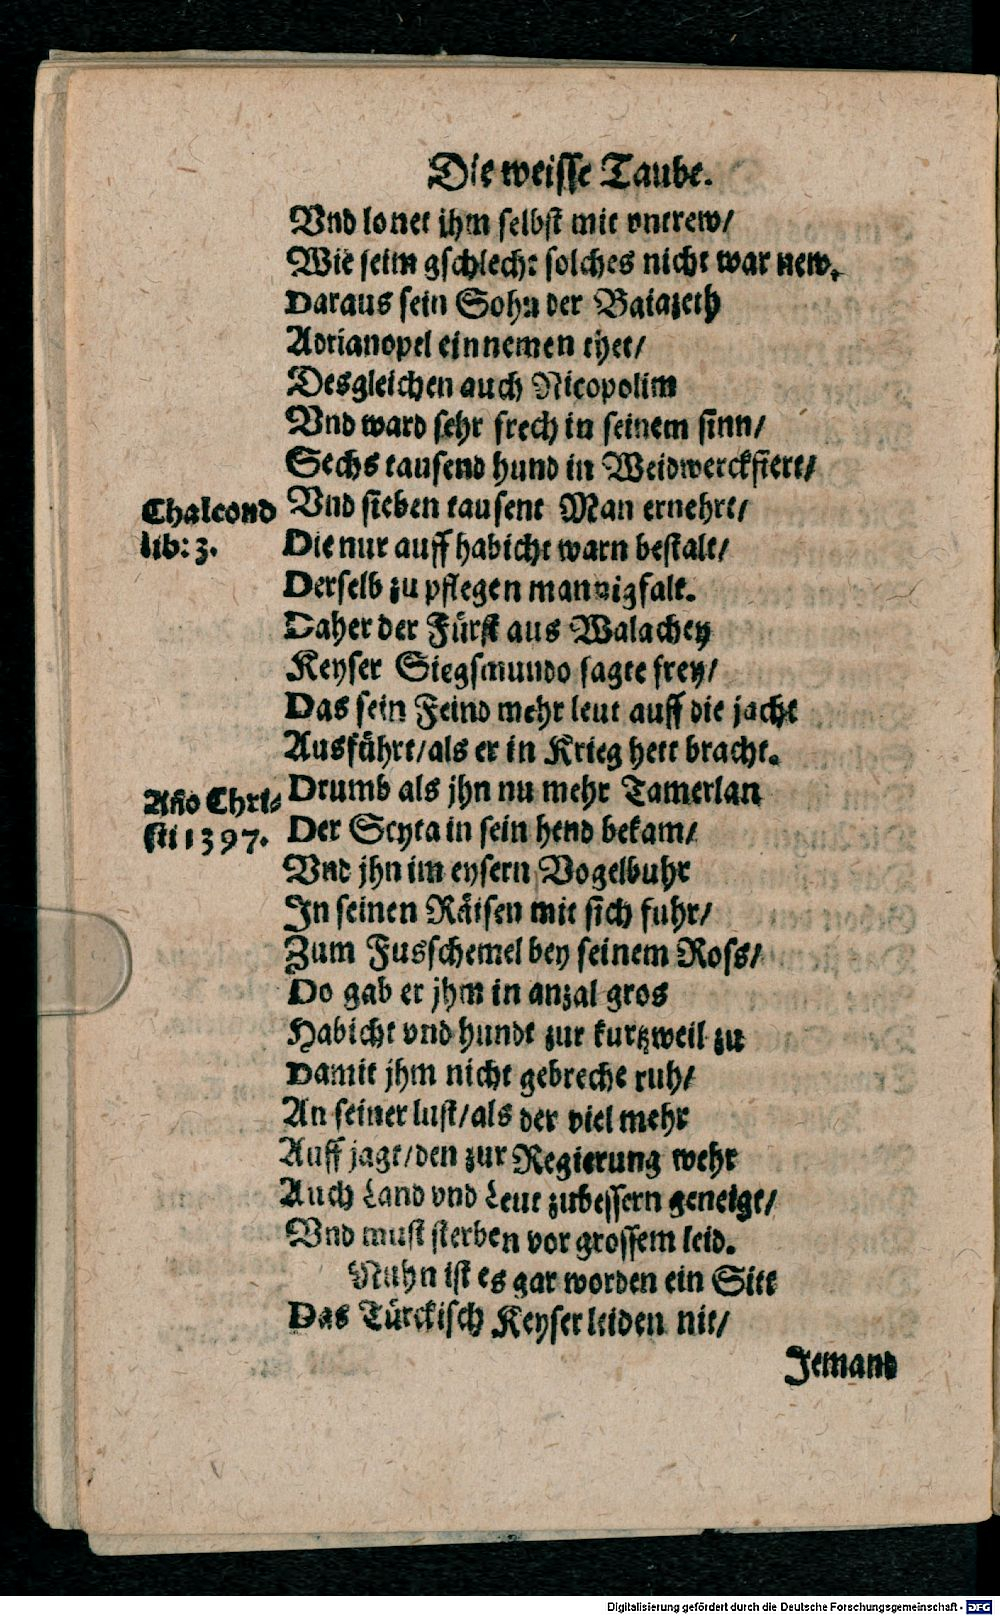 Die weisse Taube.
Vnd lonet ihm selbst mit vntrew/
Wie seim gschlecht solches nicht war new.
Daraus sein Sohn der Baiazeth
Adrianopel einnemen thet/
Desgleichen auch Nicopolim
Vnd ward sehr frech in seinem sinn/
Sechs tausend hund in Weidwerckfiert/
Chalcond
Vnd sieben tausent Man ernehrt/
lib: 3.
Die nur auff habicht warn bestalt/
Derselb zu pflegen mannigfalt.
Daher der Fürst aus Walachey
Keyser Siegsmundo sagte frey/
Das sein Feind mehr leut auff die jacht
Ausführt/als er in Krieg hett bracht.
Año Chri-
Drumb als jhn nu mehr Tamerlan
sti 1397.
Der Scyta in sein hend bekam/
Vnd jhn im eysern Vogelbuhr
In seinen Räisen mit sich fuhr/
Zum Fusschemel bey seinem Ross/
Do gab er jhm in anzal gros
Habicht vnd hundt zur kurtzweil zu
Damit jhm nicht gebreche ruh/
An seiner lust/als der viel mehr
Auff jagt/den zur Regierung wehr
Auch Land vnd Leut zubessern geneigt/
Vnd must sterben vor grossem leid.
Nuhn ist es gar worden ein Sitt
Das Türckisch Keyser leiden nit/
Jemand
Digitalisierung gefördert durch die Deutsche Forschungsgemeinschaft - DFG